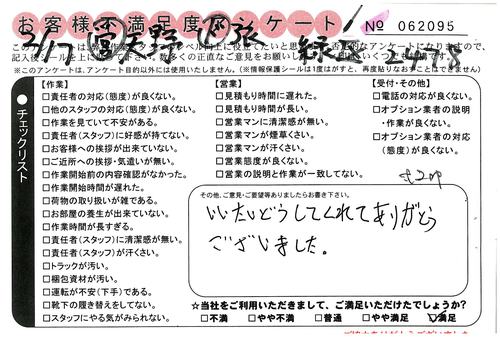 お客様不満足度アンケート
№ 062095
3/17
緑区 2478
記入後
※このアンケートは、アンケート目的以外には使用いたしません。(※情報保護シールは1度はがすと、再度貼りなおすことはできません)
●チェックリスト
【作業】
□責任者の対応(態度)が良くない。
□他のスタッフの対応(態度)が良くない。
□作業を見ていて不安がある。
□責任者(スタッフ)に好感が持てない。
□お客様への挨拶が出来ていない。
□ご近所への挨拶・気遣いが無い。
□作業開始前の内容確認がなかった。
□作業開始時間が遅れた。
□荷物の取り扱いが雑である。
□お部屋の養生が出来ていない。
□作業時間が長すぎる。
□責任者(スタッフ)に清潔感が無い。
□責任者(スタッフ)が汗くさい。
□トラックが汚い。
□梱包資材が汚い。
□運転が不安(下手)である。
□靴下の履き替えをしてない。
□スタッフにやる気がみられない。
【営業】
□見積もり時間に遅れた。
□見積もり時間が長い。
□営業マンに清潔感が無い。
□営業マンが煙草くさい。
□営業マンが汗くさい。
□営業態度が良くない。
□営業の説明と作業が一致してない。
【受付・その他】
□電話の対応が良くない。
□オプション業者の説明
・作業が良くない。
□オプション業者の対応
(態度)が良くない。
その他、ご意見・ご要望等ありましたらお書き下さい。
いいたいどうしてくれてありがとう
ございました。
☆当社をご利用いただきまして、ご満足いただけたでしょうか?
□不満 □やや不満 □普通 □やや満足 ☑満足